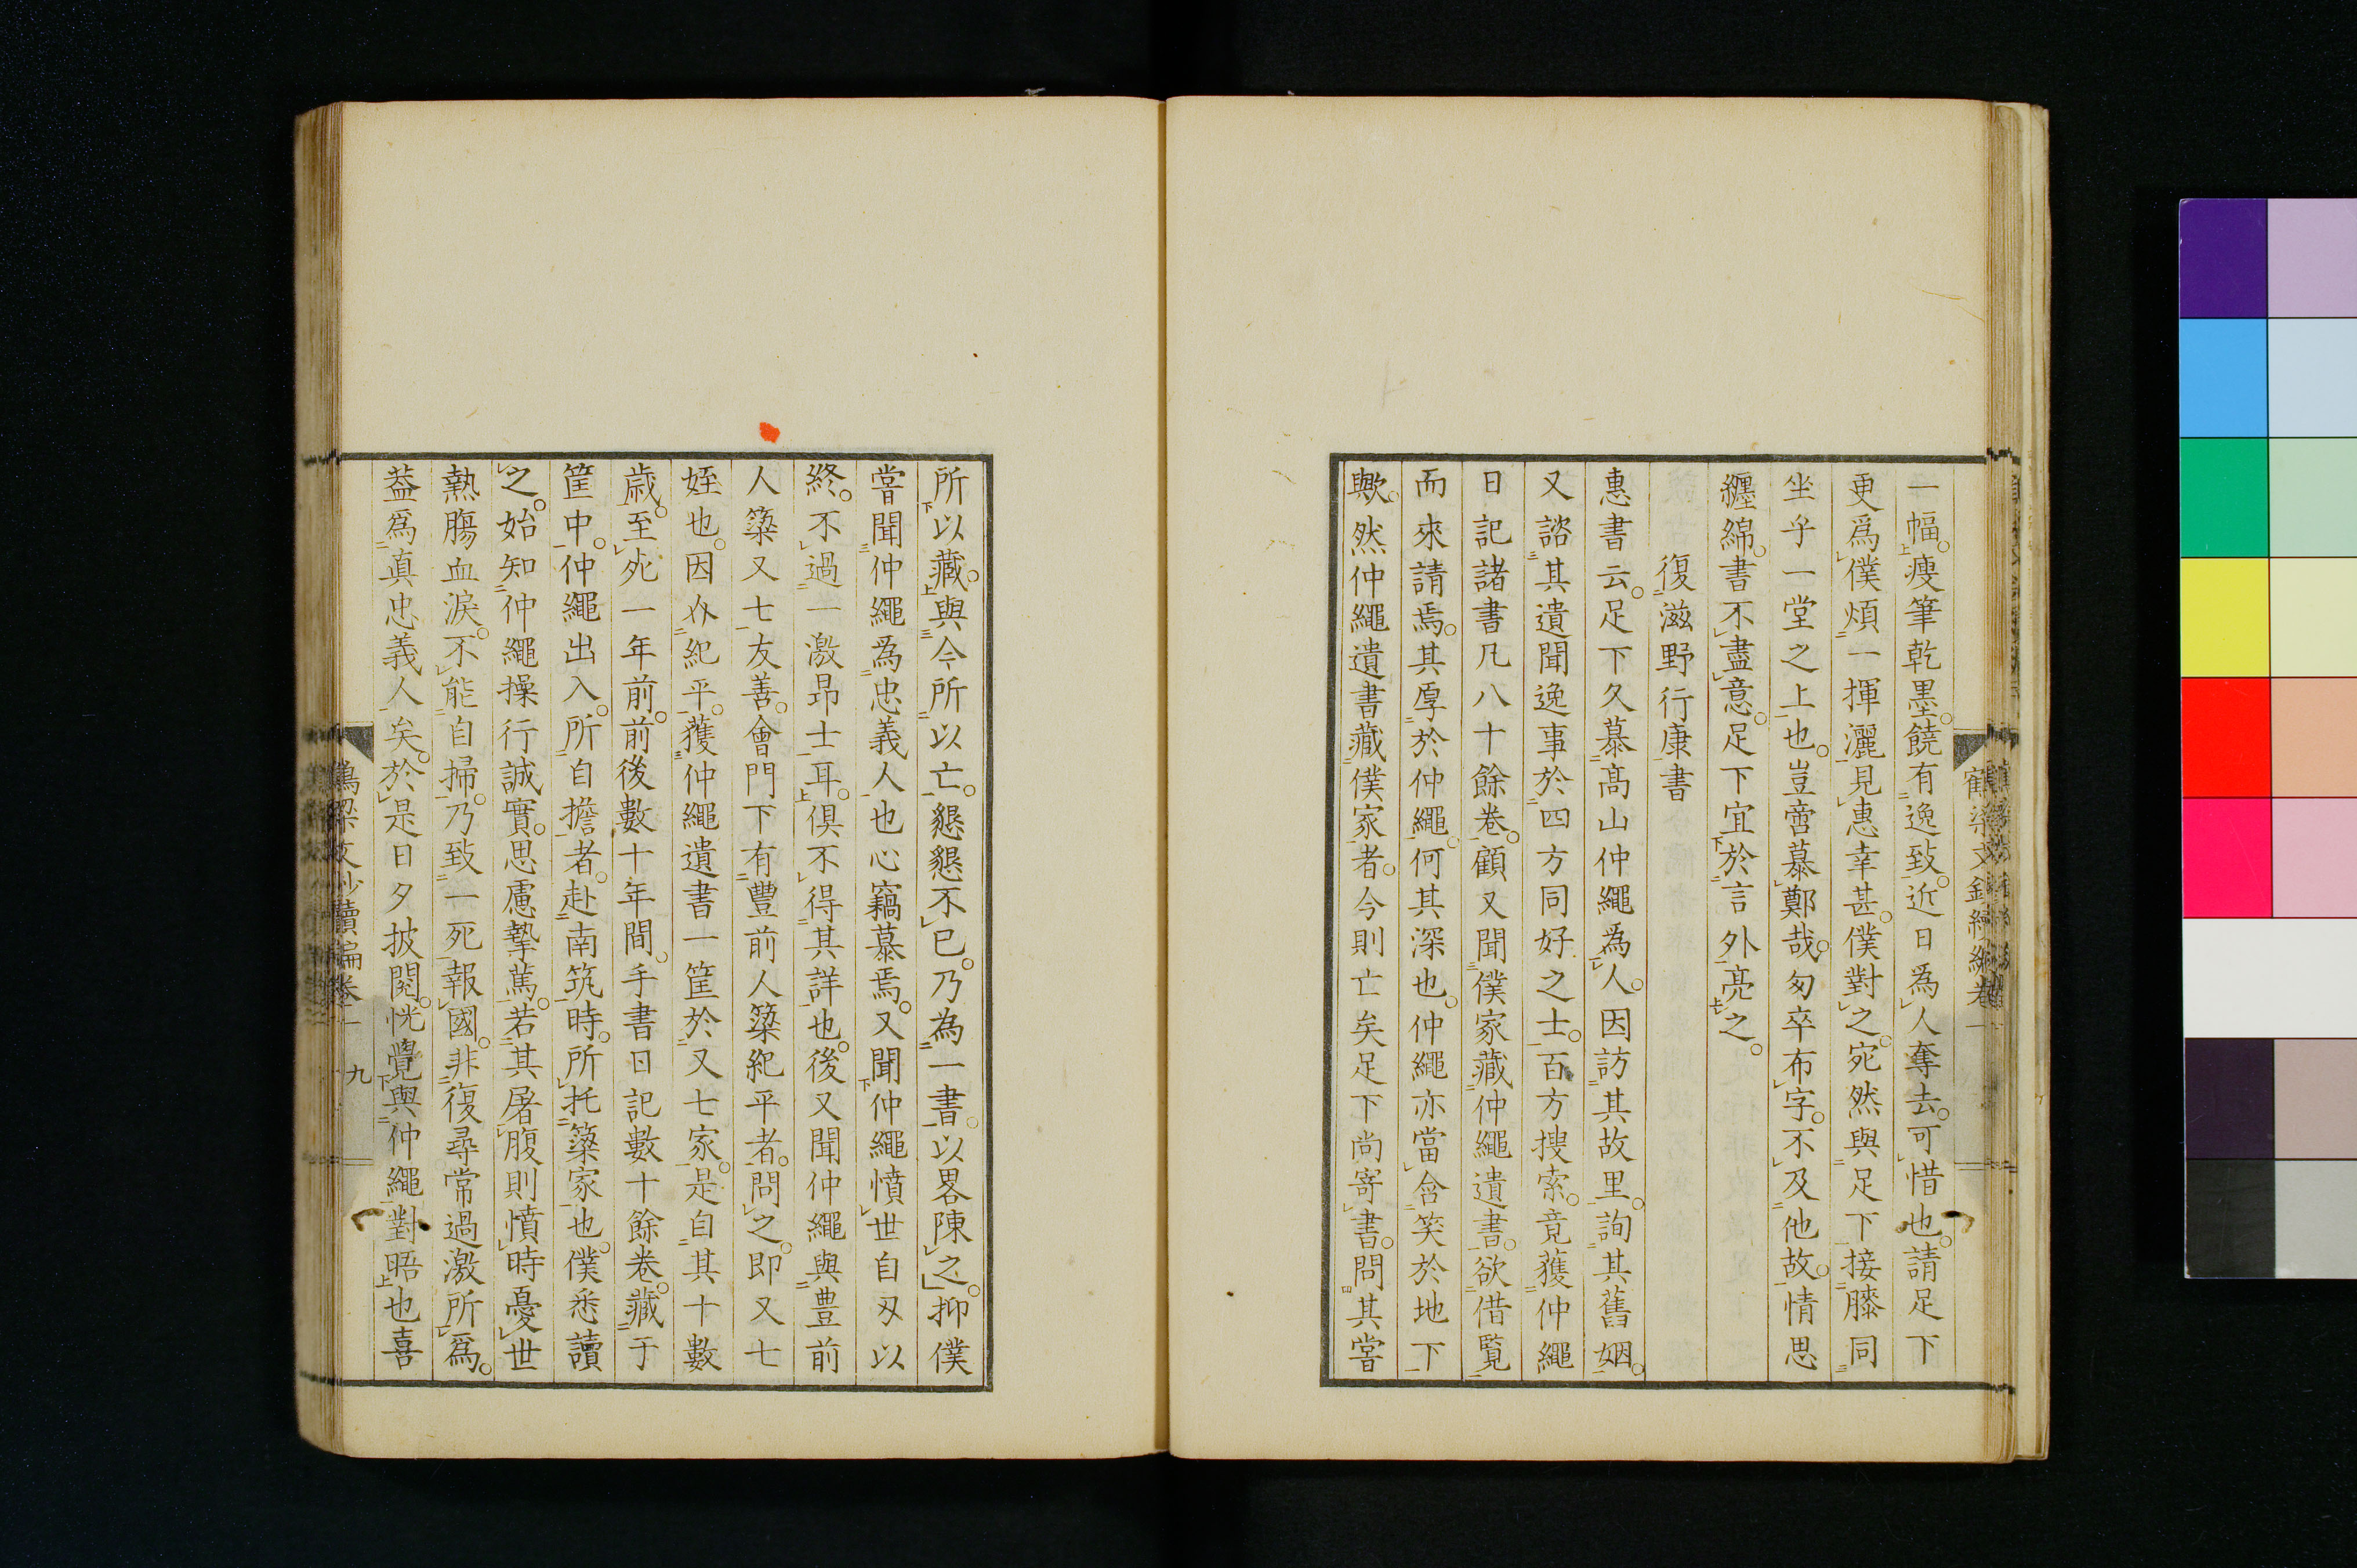 一幅。瘦筆乾墨。饒有逸致。近日為人奪去。可惜也。請足下
更爲僕煩一揮灑。見惠幸甚。僕對之。宛然與足下接膝同
坐乎一堂之上也。豈啻慕鄭哉。匆卒布字。不及他故。情思
纏綿。書不盡意。足下宜於言外亮之。
復滋野行康書
惠書云。足下久慕高山仲繩爲人。因訪其故里。詢其舊姻。
又諮其遺聞逸事於四方同好之士。百方搜索。竟獲仲繩
日記諸書凡八十餘卷。顧又聞僕家藏仲繩遺書。欲借覽
而來請焉。其厚於仲繩。何其深也。仲繩亦當含笑於地下
歟。然仲繩遺書藏僕家者。今則亡矣足下尚寄書。問其嘗
所以藏。與今所以亡。懇懇不已。乃為一書。以畧陳之。抑僕
嘗聞仲繩爲忠義人也心竊慕焉。又聞仲繩憤世自刃以
終。不過一激昂士耳。俱不得其詳也。後又聞仲繩與豊前
人簗又七友善。會門下有豐前人簗紀平者。問之。即又七
姪也。因介紀平。獲仲繩遺書一筐於又七家。是自其十數
歲。至死一年前。前後數十年間。手書日記數十餘卷。藏于
筐中。仲繩出入。所自擔者。赴南筑時。所托簗家也。僕悉讀
之。始知仲繩操行誠實。思慮摯萬。若其屠腹則憤時憂世
熱膓血淚。不能自掃。乃致一死報國。非復尋常過激所爲。
葢爲真忠義人矣。於是日夕披閱。恍覺與仲繩對晤也喜
九